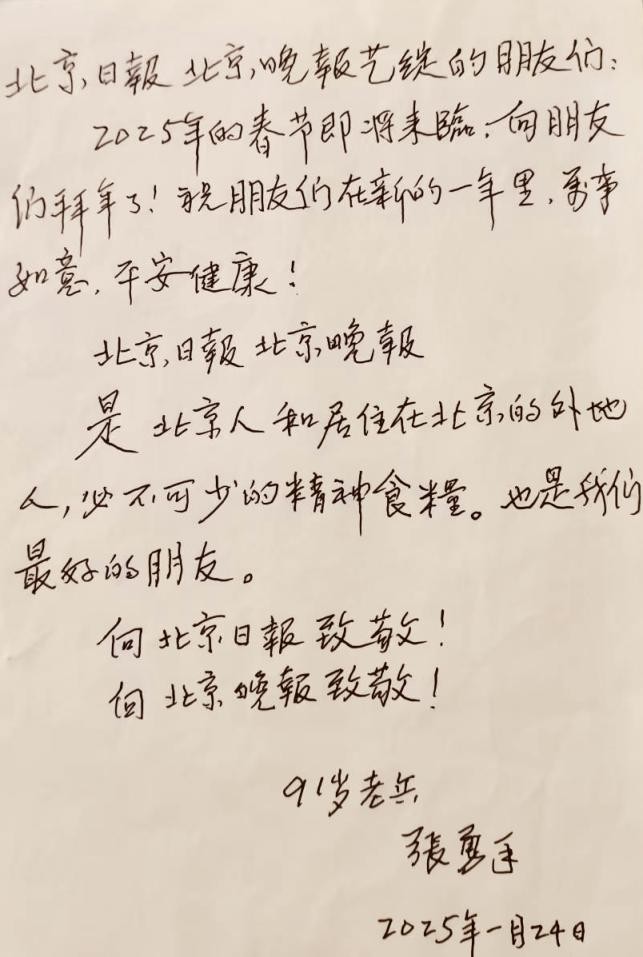 北京日報北京晚報艺绽的朋友们:
2025年的春节即将来臨.向朋友
们拜年了!祝朋友们在新的一年里,萬事
如意,平安健康!
北京日報北京晚報
是北京人和居住在北京的外地
人,必不可少的精神食糧。也是我们
最好的朋友。
向北京日報致敬!
向北京晚報致敬!
91岁老兵
張勇手
2025年一月24日